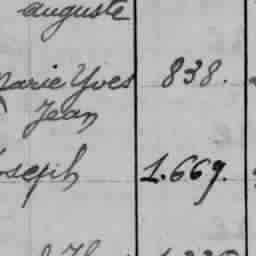 auguste
Marie Yves 838.
Jean
Joseph 1.669.